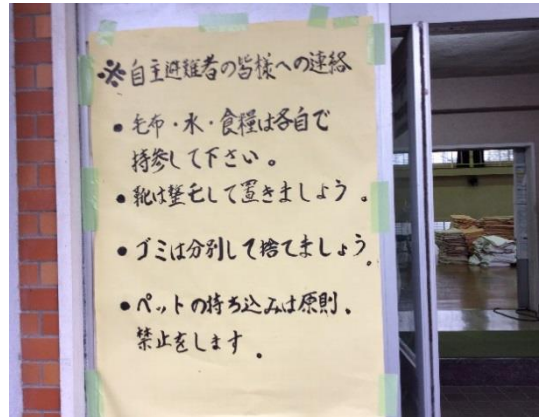 ※自主避難者の皆様への連絡
●毛布・水・食糧は各自で
持参して下さい。
●靴は整とんして置きましょう。
●ゴミは分別して捨てましょう。
●ペットの持ち込みは原則、
禁止をします。